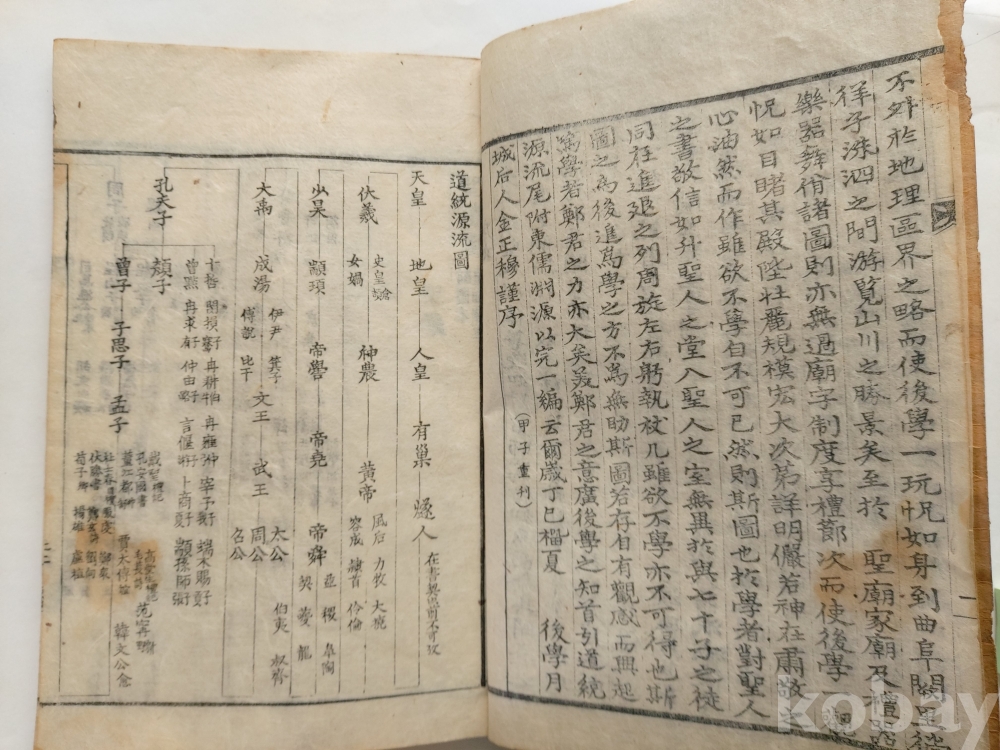 不外於地理區界之略而使後學一玩怳如身到曲阜闕里
徉于洙泗之間游覧山川之勝景矣至於 聖廟家廟及禮器
樂器舞佾諸圖則亦無過廟宇制度享禮節次而使後學
怳如目睹其殿陛壯麗規模宏大次第詳明儼若神在肅敬之
心油然而作雖欲不學自不可已然則斯圖也於學者對聖人
之書敬信如升聖人之堂入聖人之室無異於與七十子之徒
同在進退之列周旋左右躬執杖几雖欲不學亦不可得也斯
圖之爲後進爲學之方不爲無助斯圖若存自有觀感而興起
爲學者鄭君之力亦大矣美鄭君之意廣後學之知首引道統
源流尾附東儒淵源以完一編云爾歲丁巳榴夏 後學月
城后人金正穆謹序
(甲子重刊)
道統源流圖
天皇 地皇 人皇 有巢 燧人
伏羲 史皇 女媧 神農 黃帝 風后 力牧 大鹿 容成 隷首 伶倫
少昊 顓頊 帝嚳 帝堯 帝舜 益 稷 皐陶 契 夔 龍
大禹 成湯 伊尹 箕子 傅說 比干 文王 武王 太公 周公 召公 伯夷 叔齊
孔夫子 顔子 十哲 閔損 冉耕 冉雍 宰予 端木賜 冉求 仲由 言偃 卜商 顓孫師
曾子 子思子 孟子
董江都 賈太傅 韓文公愈
荀子 揚雄 盧植
kobay